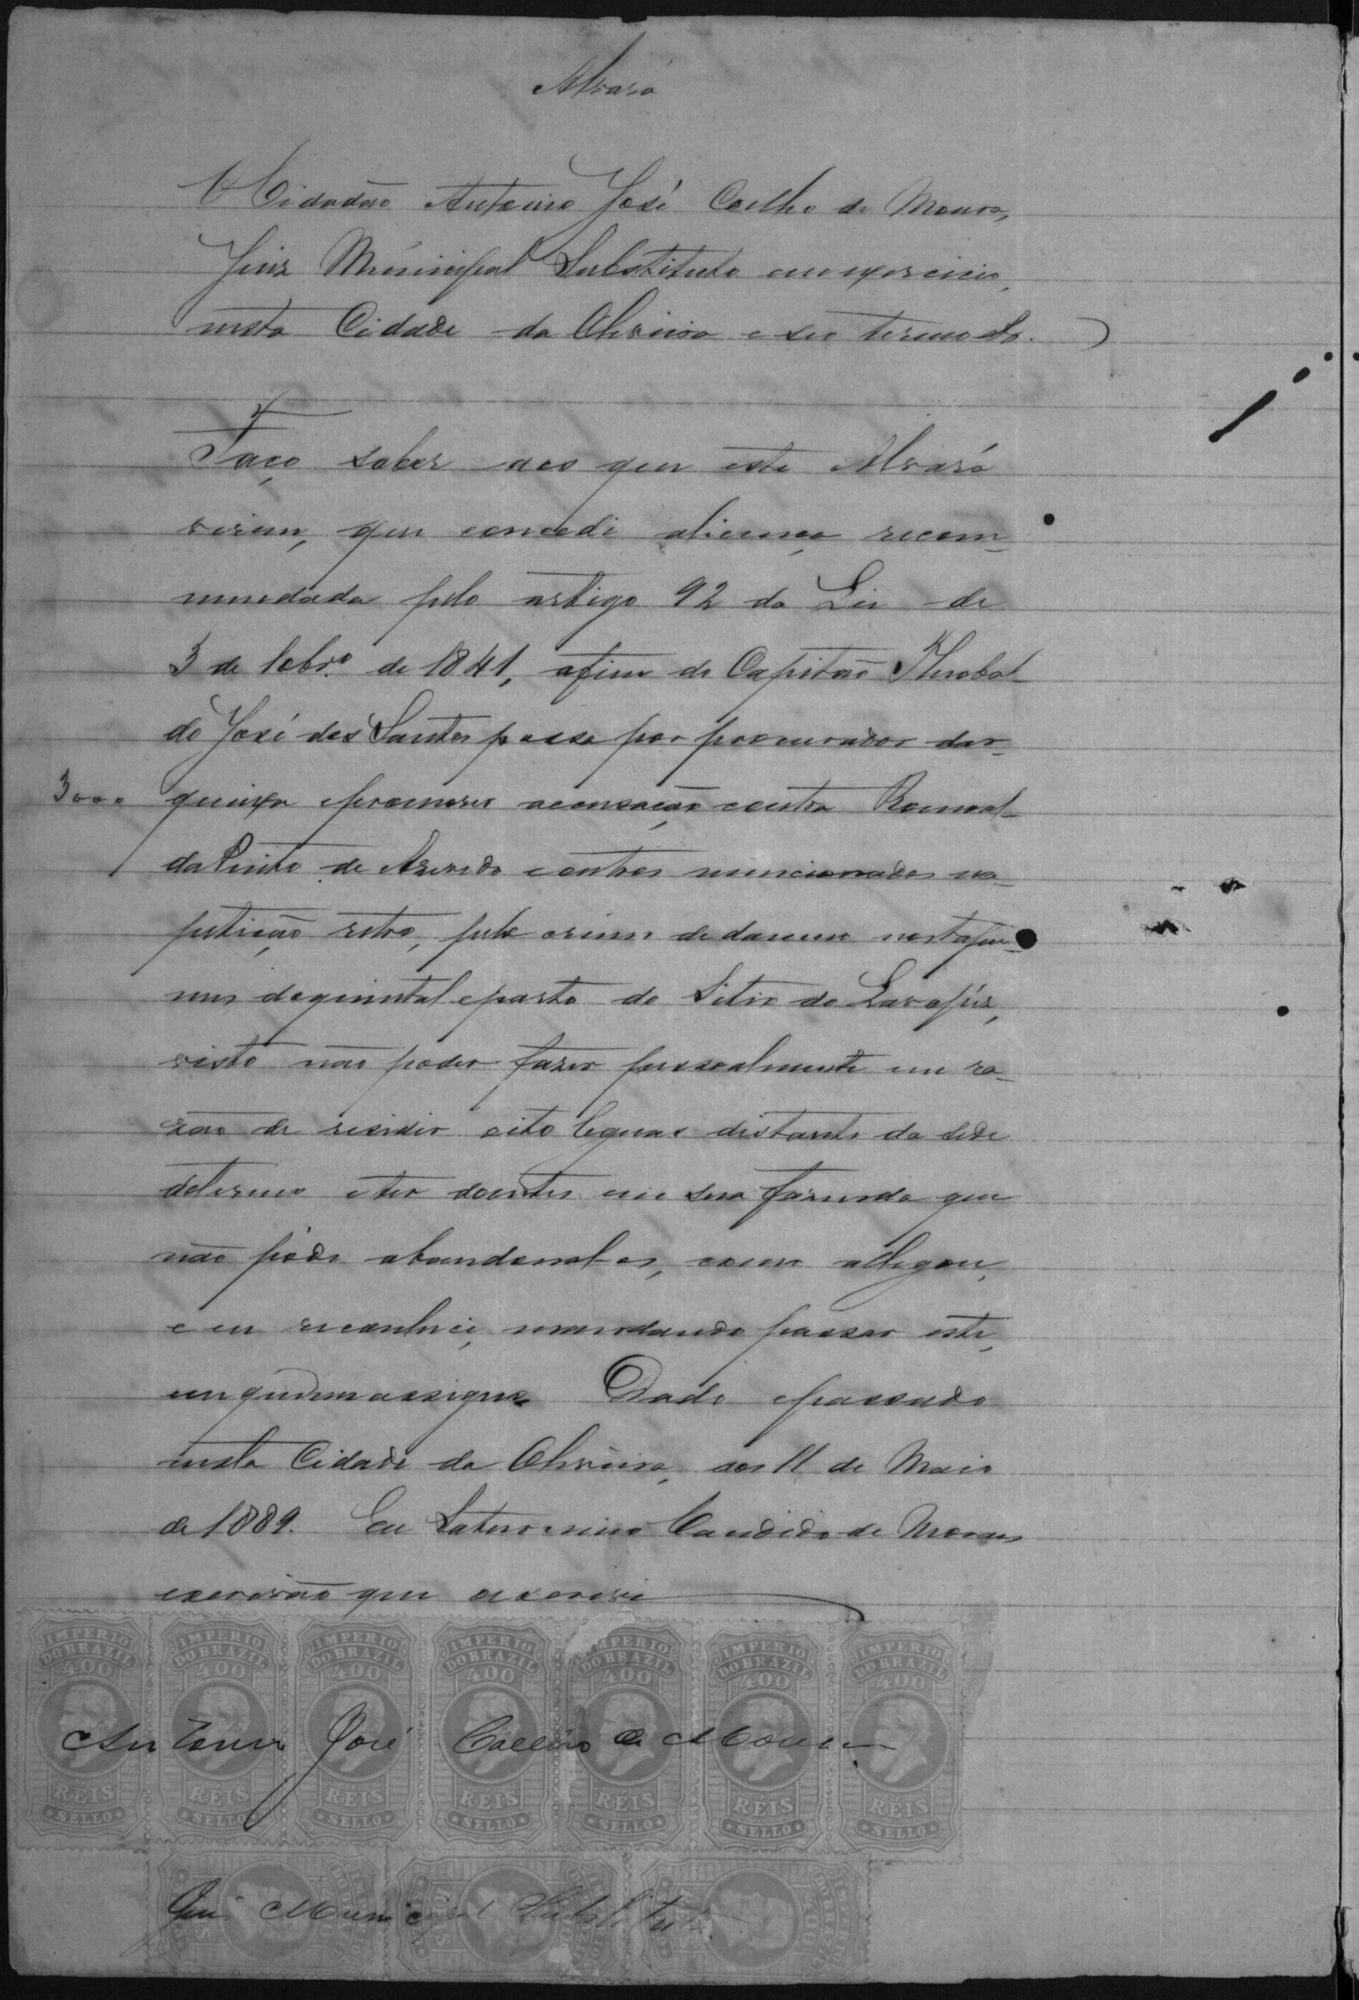 Alvará
O Cidadão Antonio José Coelho de Moura,
Juiz Municipal Substituto em exercicio,
nesta Cidade da Oliveira e seu termo etc.
Faço saber aos que este Alvará
virem, que concedi a licença recom-
mendada pelo artigo 92 da Lei de
3 de 10br.º de 1841, afim de Capitão Theobal-
do José dos Santos possa por procurador dar
3000 queixa e promover accusação contra Romoal-
da Pinto de Azevedo e outros mencionados na
petição retro, pelo crime de damno
de quintal e pasto do Sitio do Lavapés,
visto não poder fazer pessoalmente em ra-
zão de residir oito leguas distante da séde
do termo e ter doentes em sua fazenda que
não póde abandonal-os, como allegou,
e eu reconheci, mandando passar este,
em que me assigno. Dado e passado
nesta Cidade da Oliveira, aos 11 de Maio
de 1889. Eu Saturnino Candido de Moraes
escrivão que o escrevi
IMPERIO DO BRAZIL 400 RÉIS SELLO
IMPERIO DO BRAZIL 400 RÉIS SELLO
IMPERIO DO BRAZIL 400 RÉIS SELLO
IMPERIO DO BRAZIL 400 RÉIS SELLO
IMPERIO DO BRAZIL 400 RÉIS SELLO
IMPERIO DO BRAZIL 400 RÉIS SELLO
IMPERIO DO BRAZIL 400 RÉIS SELLO
Antonio José Coelho de Moura
Juiz Municipal Substituto